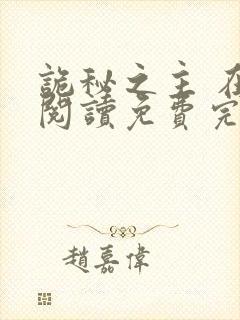 詭秘之主 在
閱讀免費完
趙嘉偉